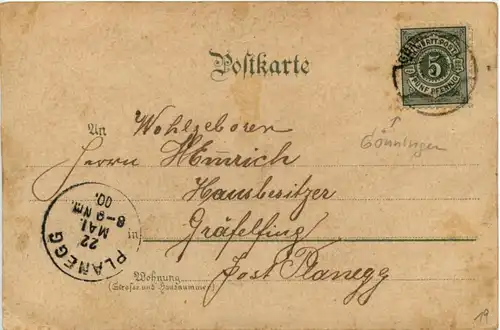 Postkarte
5
FÜNF PFENNIG
Gönningen
An Wohlgeboren
Herrn Heinrich
Hausbesitzer
in Gräfelfing
Post Planegg
Wohnung
(Strasse und Hausnummer)
PLANEGG
22
MAI.
8-9 Nm.
00.
19